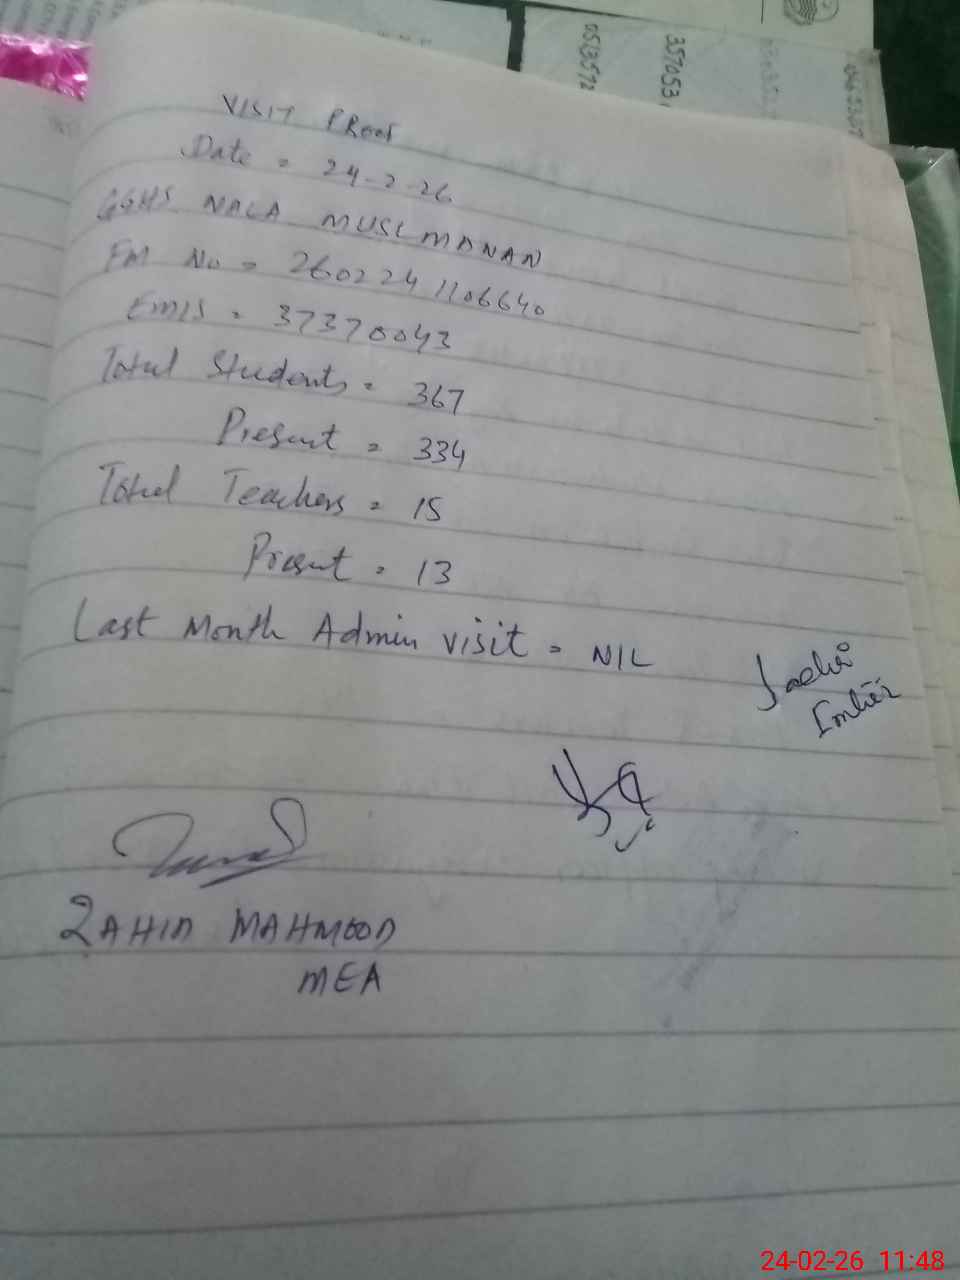 VISIT PROOF
Date = 24-2-26
GGHS NALA MUSLMANAN
FM No = 260224 1106640
EMIS = 37370043
Total Students = 367
Present = 334
Total Teachers = 15
Present = 13
Last Month Admin visit = NIL
ZAHID MAHMOOD
MEA
0513572
357053
24-02-26 11:48